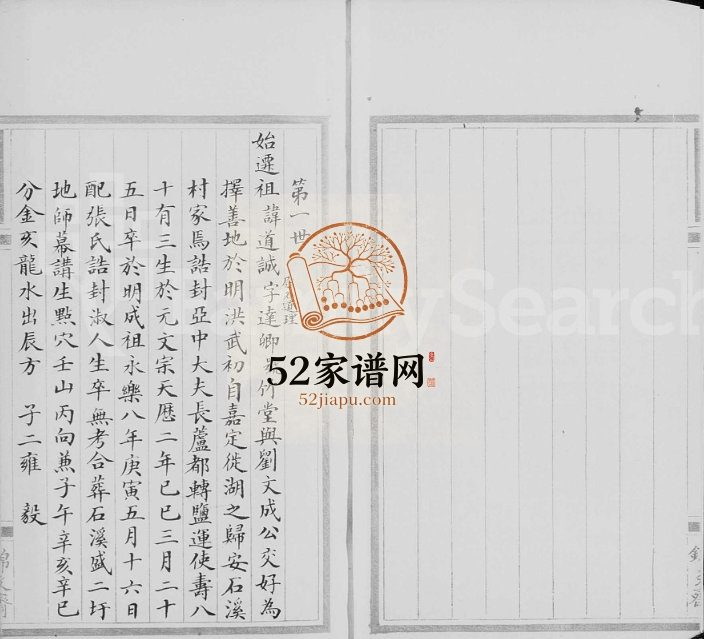 第一世
始遷祖諱道誠字達卿竹堂與劉文成公交好為
擇善地於明洪武初自嘉定徙湖之歸安石溪
村家焉誥封亞中大夫長蘆都轉鹽運使壽八
十有三生於元文宗天歷二年己巳三月二十
五日卒於明成祖永樂八年庚寅五月十六日
配張氏誥封淑人生卒無考合葬石溪盛二圩
地師幕講生點穴壬山丙向兼子午辛亥辛巳
分金亥龍水出辰方 子二雍 毅
52家谱网
52jiapu.com
Search